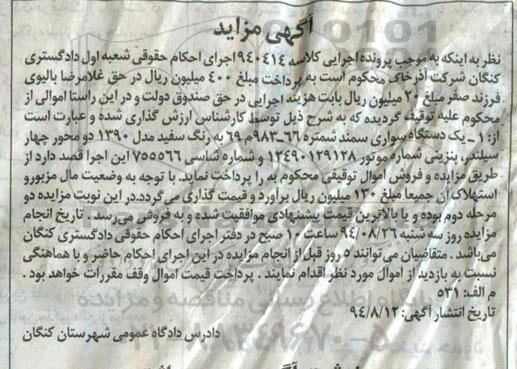 آگهی مزاید
نظر به اینکه به موجب پرونده اجرایی کلاسه ۹۴۰۴۱۴ اجرای احکام حقوقی شعبه اول دادگستری
کنگان شرکت آذرخاک محکوم است به پرداخت مبلغ ۴۰۰ میلیون ریال در حق غلامرضا بالیوی
فرزند صفر مبلغ ۲۰ میلیون ریال بابت هزینه اجرایی در حق صندوق دولت و در این راستا اموالی از
محکوم علیه توقیف گردیده که به شرح ذیل توسط کارشناس ارزش گذاری شده و عبارت است
از: ۱ـ یک دستگاه سواری سمند شمتره ۶۶ـ۹۸۳م۶۹ به رنگ سفید مدل ۱۳۹۰ دو محور چهار
سیلندر بنزینی شماره موتور ۱۲۴۹۰۱۲۹۱۲۸ و شماره شاسی ۷۵۵۵۶۶ این اجرا قصد دارد از
طریق مزایده و فروش اموال توقیفی محکوم به را پرداخت نماید. با توجه به وضعیت مال مزبورو
استهلاک آن جمیعا مبلغ ۱۳۰ میلیون ریال براورد و قیمت گذاری می گردد.در این نوبت مزایده دو
مرحله دوم بوده و با بالاترین قیمت پیشنهادی موافقیت شده و به فروش می رسد . تاریخ انجام
مزایده روز سه شنبه ۹۴/۰۸/۲۶ ساعت ۱۰ صبح در دفتر اجرای احکام حقوقی دادگستری کنگان
می باشد . متقاضیان می توانند ۵ روز قبل از انجام مزایده در این اجرای احکام حاضر و با هماهنگی
نسبت به بازدید از اموال مورد نظر اقدام نمایند . پرداخت قیمت اموال وقف مقررات خواهد بود .
م الف: ۵۳۱
تاریخ انتشار آگهی: ۹۴/۸/۱۲
دادرس دادگاه عمومی شهرستان کنگان